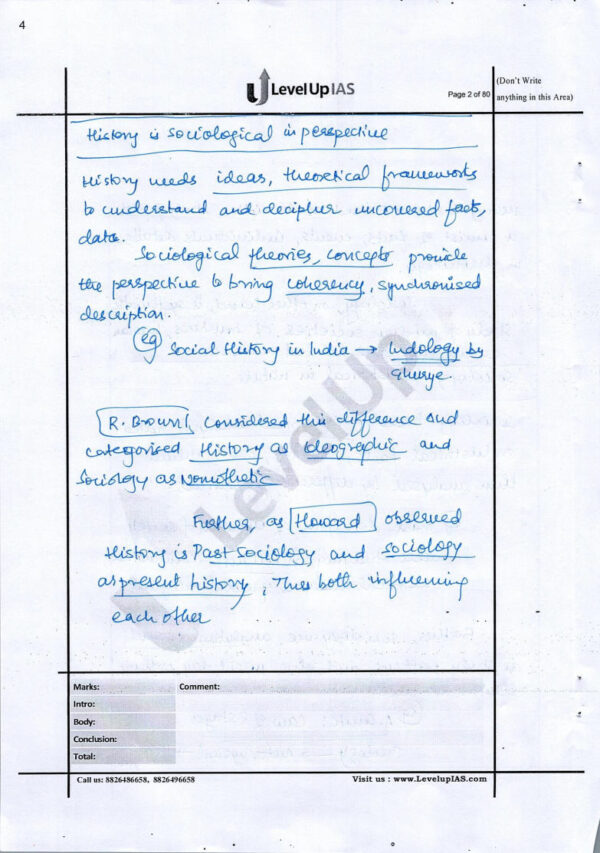 4
LevelUpIAS
Page 2 of 80
(Don't Write
anything in this Area)
History is sociological in perspective
History needs ideas, theoretical frameworks
to understand and decipher uncovered facts,
data.
Sociological theories, concepts provide
the perspective to bring coherency, synchronised
description.
eg Social History in India → Indology by
Ghurye.
R. Brown considered this difference and
categorised History as ideographic and
Sociology as Nomothetic
Further, as Howard observed
History is Past Sociology and sociology
as present history, Thus both influencing
each other
LevelUp
Marks:
Comment:
Intro:
Body:
Conclusion:
Total:
Call us: 8826486658, 8826496658
Visit us : www.LevelupIAS.com